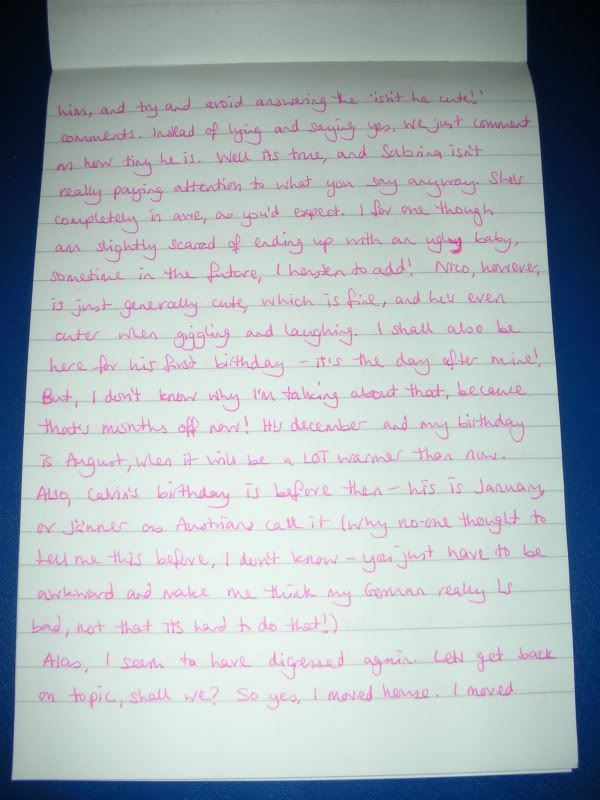 him, and try and avoid answering the 'isn't he cute!!'
comments. Instead of lying and saying yes, we just comment
on how tiny he is. Well it's true, and Sabrina isn't
really paying attention to what you say anyway. She's
completely in awe, as you'd expect. I for one though
am slightly scared of ending up with an ugly baby,
sometime in the future, I hasten to add! Nico, however,
is just generally cute, which is fine, and he's even
cuter when giggling and laughing. I shall also be
here for his first birthday - it's the day after mine!
But, I don't know why I'm talking about that, because
that's months off now! It's december and my birthday
is August, when it will be a LOT warmer than now.
Also, Calvin's birthday is before then - his is January,
or Jänner as Austrians call it (why no-one thought to
tell me this before, I don't know - you just have to be
awkward and make me think my German really is
bad, not that it's hard to do that!)
Alas, I seem to have digressed again. Let's get back
on topic, shall we? So yes, I moved house. I moved